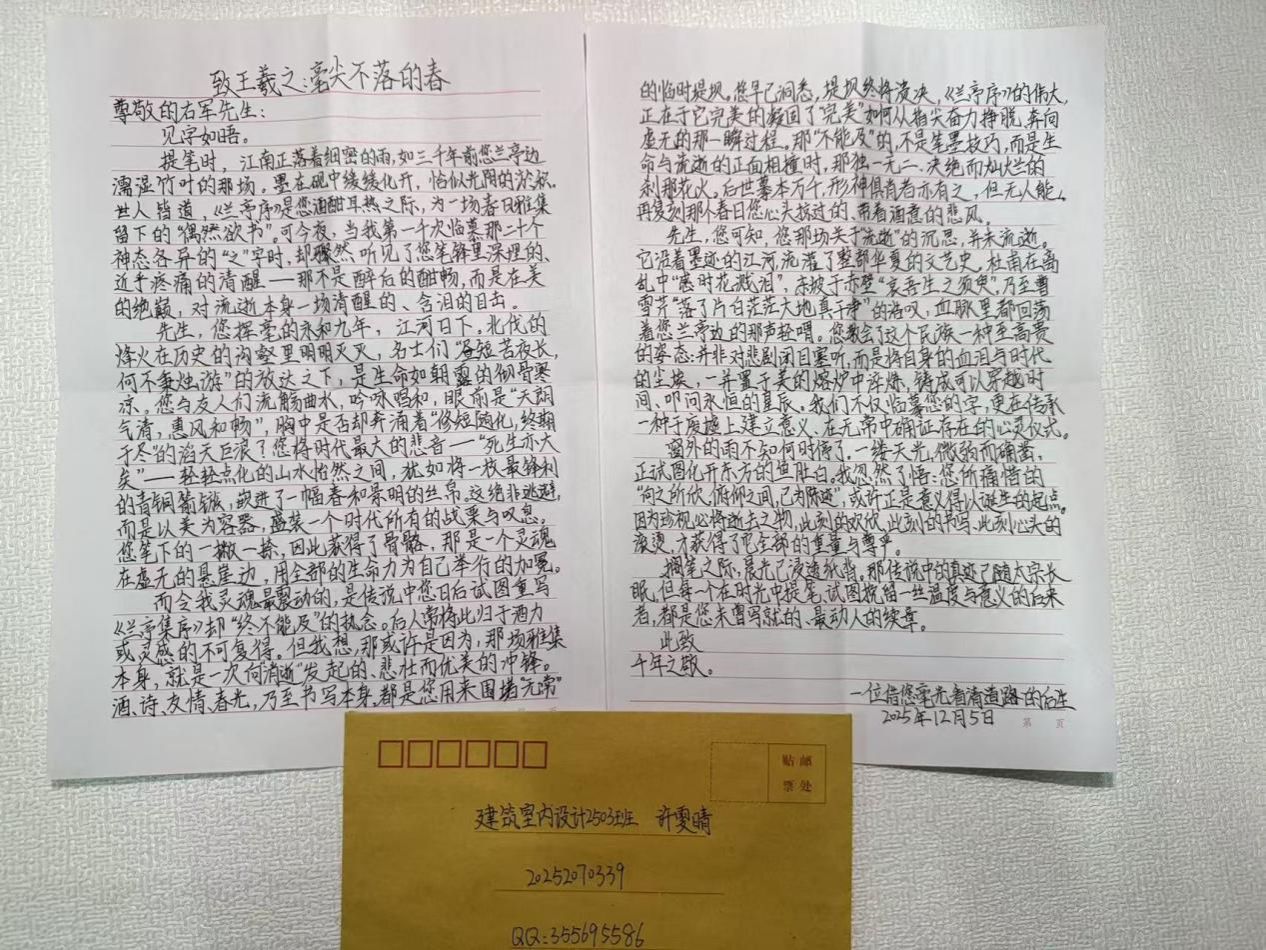 致王羲之:毫尖不落的春
尊敬的右军先生:
见字如晤。
提笔时，江南正落着细密的雨，如三千年前您兰亭边
濡湿竹叶的那场。墨在砚中缓缓化开，恰似光阴的淤积。
世人皆道，《兰亭序》是您酒酣耳热之际，为一场春日雅集
留下的“偶然欲书”。可今夜，当我第一千次临慕那二十个
神态各异的“之”字时，却骤然听见了您笔锋里深埋的、
近乎疼痛的清醒——那不是醉后的酣畅，而是在美
的绝巅，对流逝本身一场清醒的、含泪的目击。
先生，您挥毫的永和九年，江河日下。北伐的
烽火在历史的沟壑里明明灭灭，名士们“昼短苦夜长，
何不秉烛游”的放达之下，是生命如朝露的彻骨寒
凉。您与友人们流觞曲水，吟咏唱和，眼前是“天朗
气清，惠风和畅”，胸中是否却奔涌着“修短随化，终期
于尽”的滔天巨浪？您将时代最大的悲音——“死生亦大
矣”——轻轻点化的山水怡然之间，犹如将一枚最锋利
的青铜箭镞，嵌进了一幅春和景明的丝帛。这绝非逃避，
而是以美为容器，盛装一个时代所有的战栗与叹息。
您笔下的一撇一捺，因此获得了骨骼，那是一个灵魂
在虚无的悬崖边，用全部的生命力为自己举行的加冕。
而令我灵魂最震动的，是传说中您日后试图重写
《兰亭集序》却“终不能及”的执念。后人常将此归于酒力
或灵感的不可复得。但我想，那或许是因为，那场雅集
本身，就是一次向“消逝”发起的、悲壮而优美的冲锋。
酒、诗、友情、春光，乃至书写本身，都是您用来围堵“无常”
的临时堤坝。您早已洞悉，堤坝终将溃决，《兰亭序》的伟大，
正在于它完美的凝固了“完美”如何从指尖奋力挣脱，奔向
虚无的那一瞬过程。那“不能及”的，不是笔墨技巧，而是生
命与流逝的正面相撞时，那独一无二、决绝而灿烂的
刹那花火。后世摹本万千，形神俱肖者亦有之，但无人能
再复刻那个春日您心头掠过的、带着酒意的悲风。
先生，您可知，您那场关于“流逝”的沉思，并未流逝。
它沿着墨迹的江河，流灌了整部华夏的文艺史。杜甫在离
乱中“感时花溅泪”，东坡于赤壁“哀吾生之须臾”，乃至曹
雪芹“落了片白茫茫大地真干净”的浩叹，血脉里都回荡
着您兰亭边的那声轻喟。您教会了这个民族一种至高贵
的姿态:并非对悲剧闭目塞听，而是将自身的血泪与时代
的尘埃，一并置于美的熔炉中淬炼，铸成可以穿越时
间、叩问永恒的星辰。我们不仅临摹您的字，更在传承
一种于废墟上建立意义、在无常中确证存在的心灵仪式。
窗外的雨不知何时停了。一缕天光，微弱而确凿，
正试图化开东方的鱼肚白。我忽然了悟:您所痛惜的
“向之所欣，俯仰之间，已为陈迹”，或许正是意义得以诞生的起点。
因为珍视必将逝去之物，此刻的欢欣、此刻的书写、此刻心头的
滚烫，才获得了它全部的重量与尊严。
搁笔之际，晨光已浸透纸背。那传说中的真迹已随太宗长
眠，但每一个在时光中提笔，试图挽留一丝温度与意义的后来
者，都是您未曾写就的、最动人的续章。
此致
千年之敬。
一位借您毫光看清道路的后生
2025年12月5日
第 页
贴 邮
票 处
建筑室内设计2503班 许雯晴
20252070339
QQ:355695586